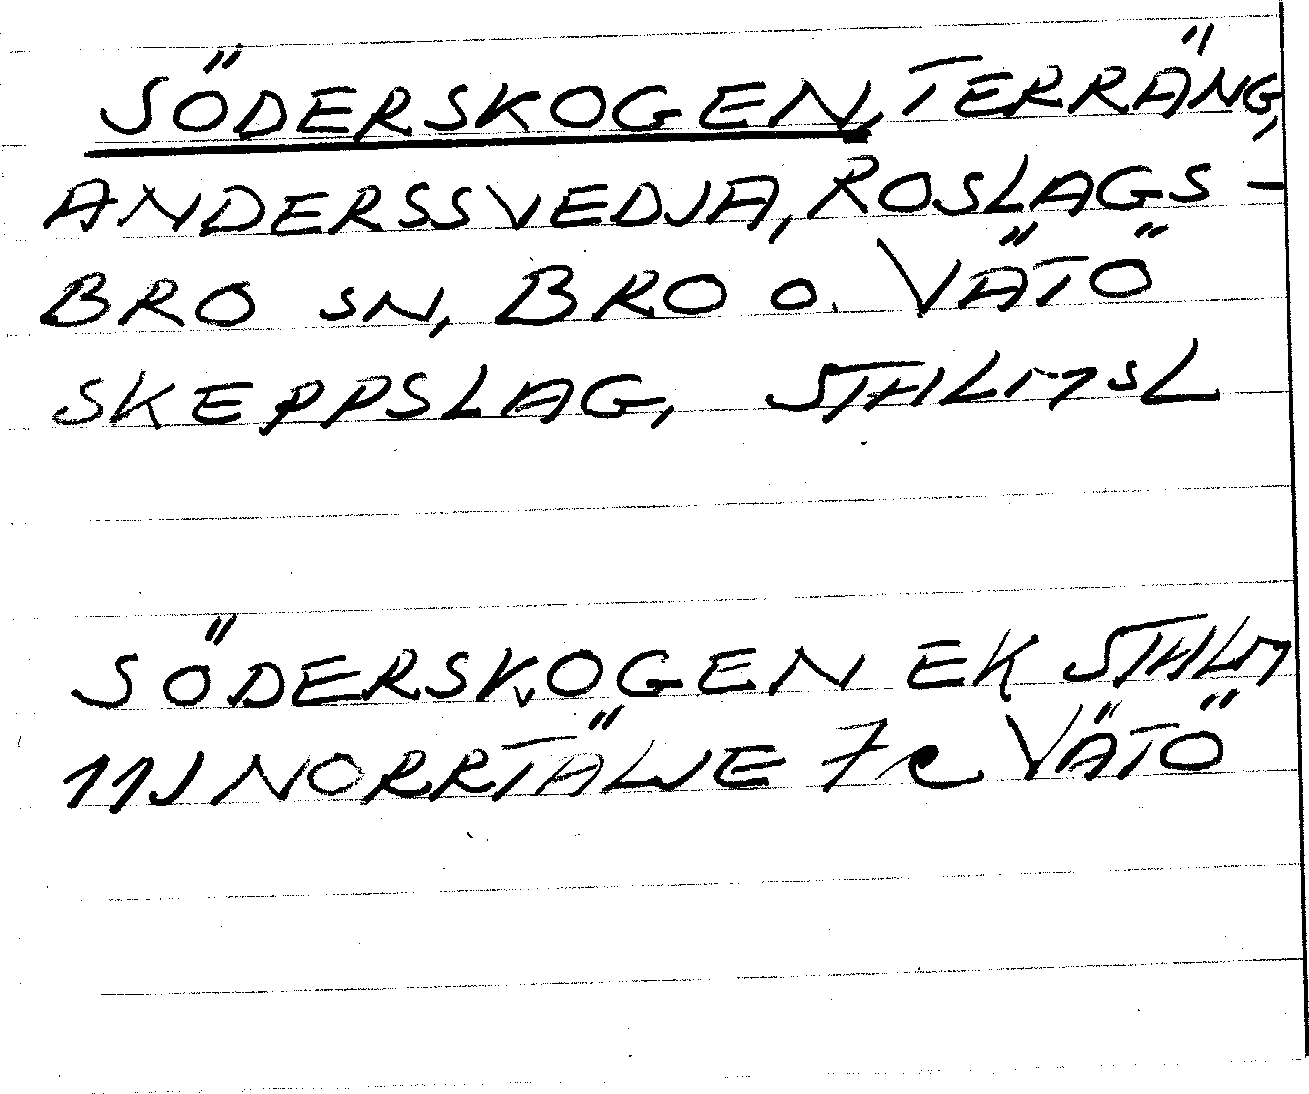 SÖDERSKOGEN, TERRÄNG,
ANDERSSVEDJA, ROSLAGS-
BRO SN, BRO O. VÄTÖ
SKEPPSLAG, STHLMSL
SÖDERSKOGEN EK STHLM
11J NORRTÄLJE 7e VÄTÖ